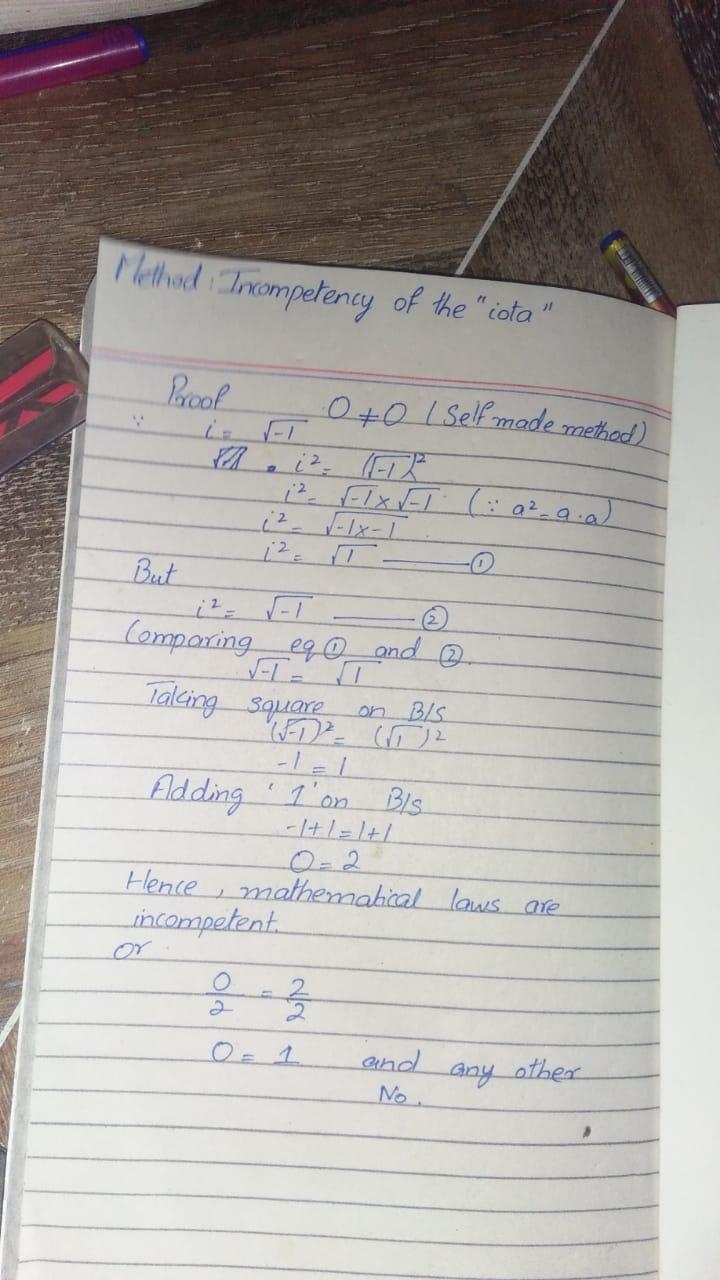 Method: Incompetency of the "iota"
Proof 0 ≠ 0 (Self made method)
∵ i = √-1
i² = (√-1)²
i² = √-1 x √-1 (∵ a² = a.a)
i² = √-1x-1
i² = √1 ——— ①
But
i² = √-1 ——— ②
Comparing eq ① and ②.
√-1 = √1
Taking square on B/S
(√-1)² = (√1)²
-1 = 1
Adding '1' on B/S
-1+1=1+1
0 = 2
Hence, mathematical laws are
incompetent.
or
0/2 = 2/2
0 = 1 and any other
No.